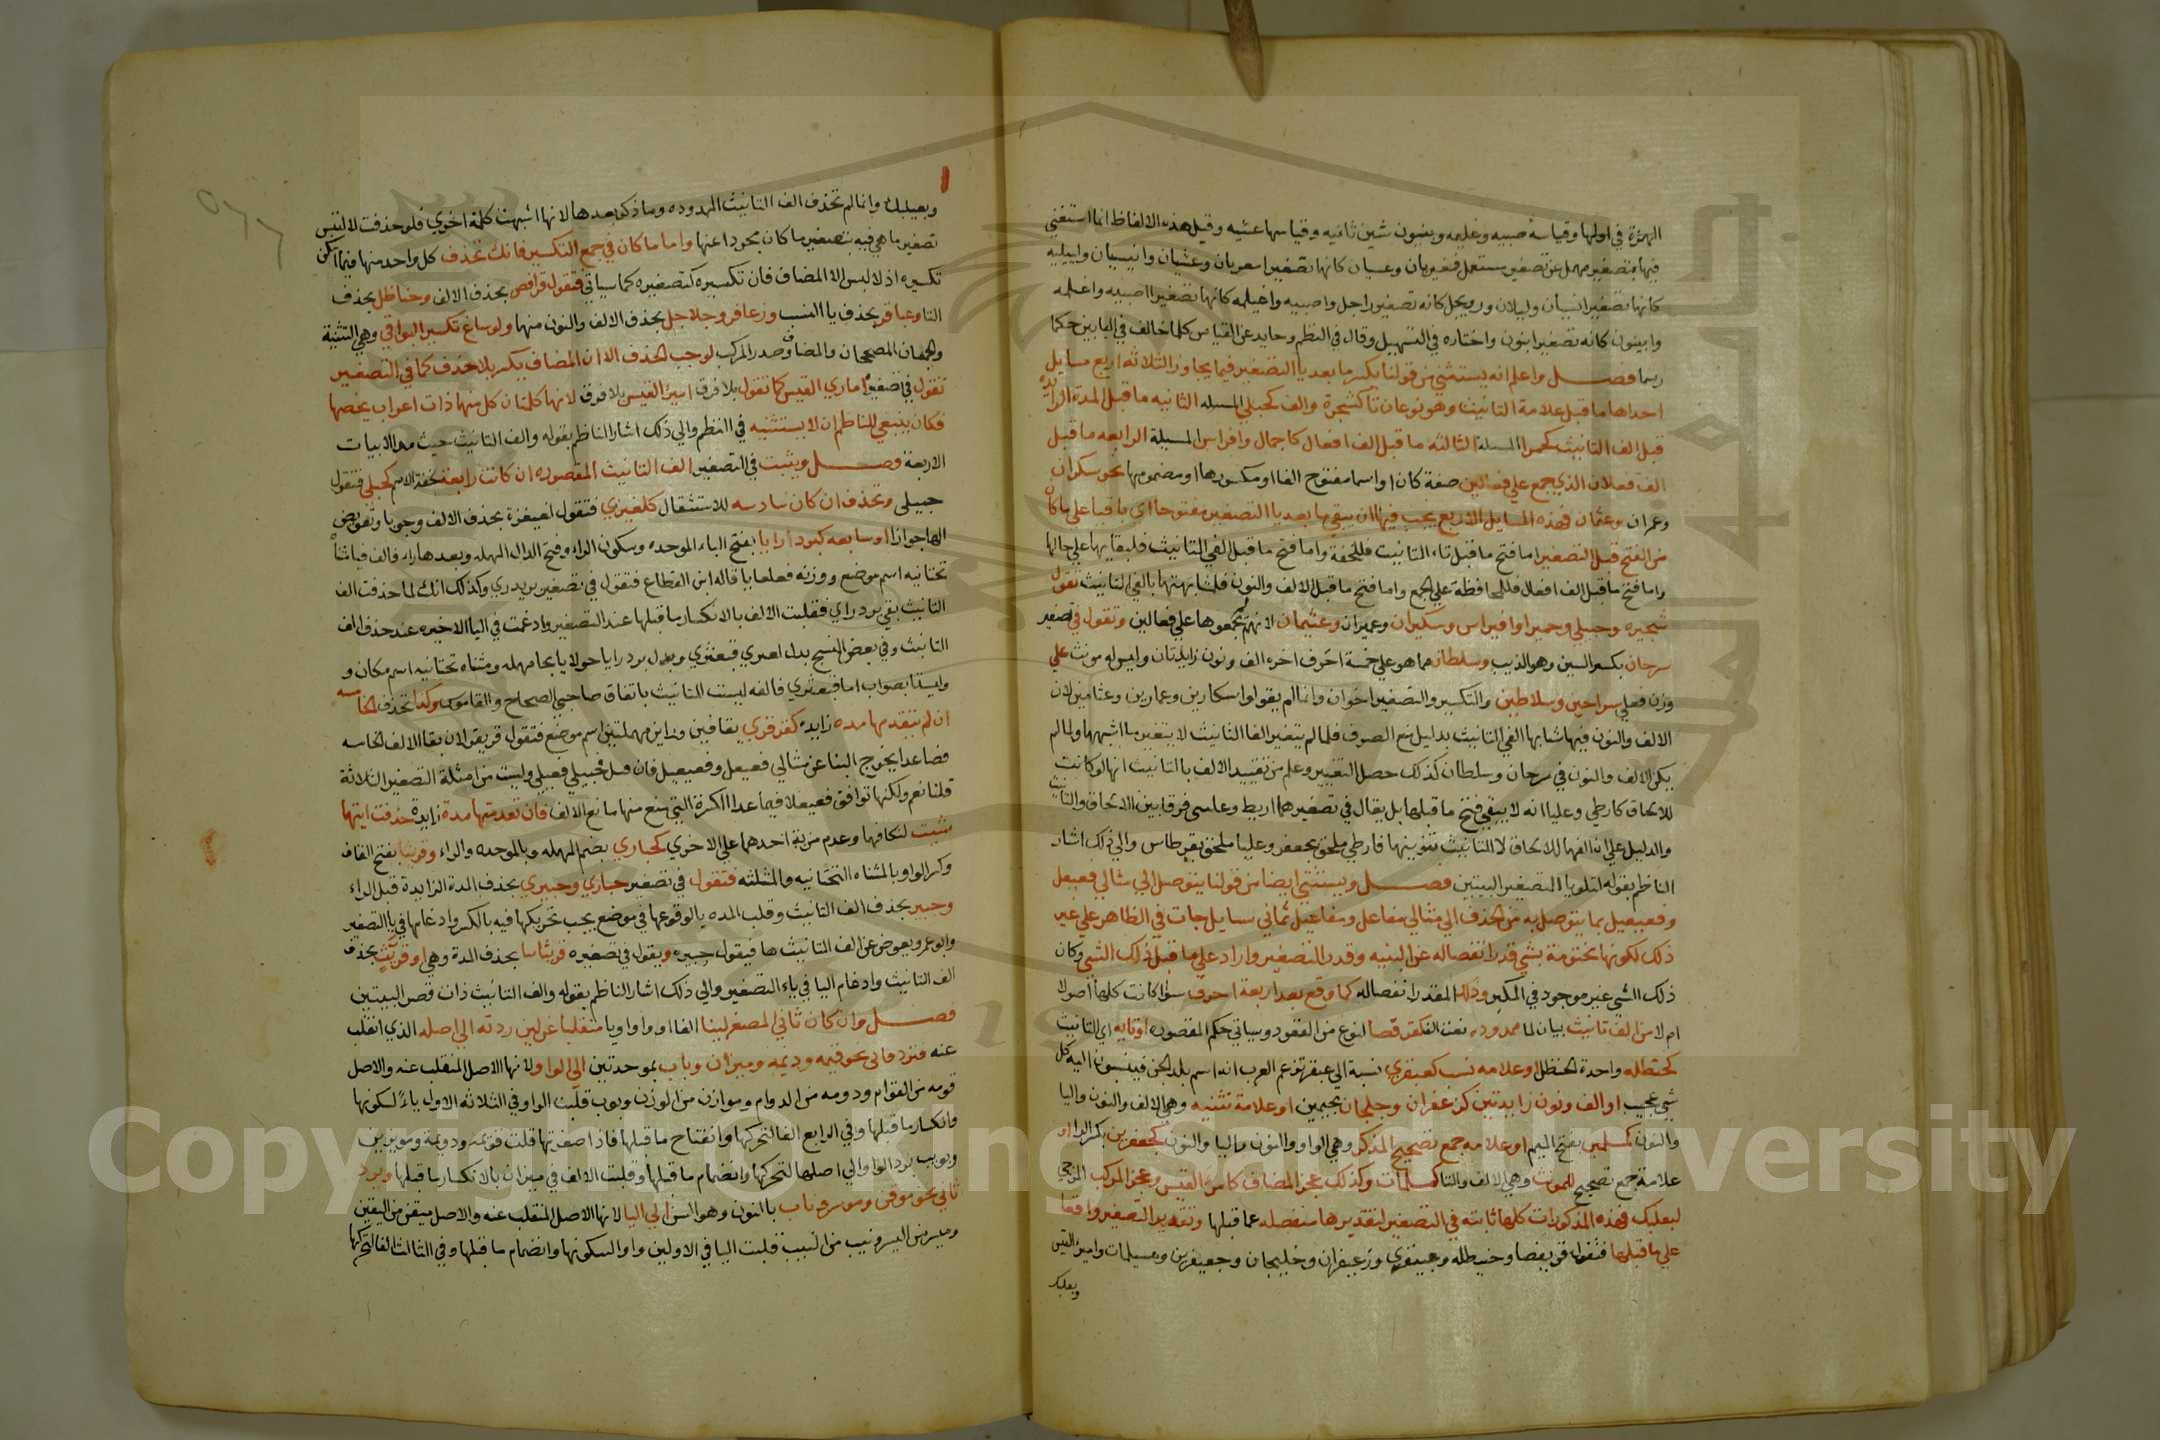 الهمزة في اولها وقياسه صبيه وغليمه وبنون شين ثانيه وقياسها عشيه وقيل هذه الالفاظ انما استغني
فيها بتصغير مهمل عن تصغير مستعمل فغيربان وعسيان كانها تصغير مغربان وعشيان وانيسيان ولييليه
كانها تصغير انسيان وليلان ورويجل كانه تصغير راجل واصيبيه واغيلمه كانها تصغير اصبيه واغلمه
وابينون كانه تصغير ابنون واختاره في التسهيل وقال في النظم وحايد عن القياس كلما خالف في البابين حكما
رسما فصل واعلم انه يستثني من قولنا يكسر ما بعد يا التصغير فيما يجاوز الثلاثه اربع مسايل
احداها ما قبل علامة التانيث وهو نوعان تا كشجرة والف كحبلي المسيله الثانيه ما قبل المدة الزايدة
قبل الف التانيث كحمرا المسيلة الثالثه ما قبل الف افعال كاجمال وافراس المسيلة الرابعه ما قبل
الف فعلان الذي لا يجمع علي فعالين صفة كان او اسما مفتوح الفا او مكسورها او مضمومها نحو سكران
وعمران وعثمان فهذه المسايل الاربع يجب فيها ان يبقي ما بعد يا التصغير مفتوحا اي باقيا علي ما كان
من الفتح قبل التصغير اما فتح ما قبل تاء التانيث فللخفة واما فتح ما قبل الفي التانيث فلبقايها علي حالها
واما فتح ما قبل الف افعال فللمحافظة علي الجمع واما فتح ما قبل الالف والنون فلمشابهتها بالفي التانيث تقول
شجيره وحبيلي وحميرا وافيراس وسكيران وعميران وعثيمان لانهم لم يجمعوها علي فعالين وتقول في تصغير
سرحان بكسر السين وهو الذيب وسلطان مما هو علي خمسة احرف اخره الف ونون زايدتان وليس له مونث علي
وزن فعلي سراحين وسلاطين والتكسير والتصغير اخوان وانما لم يقولوا سكارين وعمارين وعثامين لان
الالف والنون فيها شابها الفي التانيث بدليل منع الصرف فلما لم يتغير الفا التانيث لا يتغير ما اشبهها ولما لم
يكن الالف والنون في سرحان وسلطان كذلك حصل التغيير وعلم من تقييد الالف بالتانيث انها لو كانت
للالحاق كارطي وعلبا انه لا يبقي فتح ما قبلها بل يقال في تصغيرهما اريط وعليبي فرقا بين الالحاق والتانيث
والدليل علي ان الفها للالحاق لا للتانيث تنوينها فارطي ملحق بجعفر وعلبا ملحق بقرطاس والي ذلك اشار
الناظم بقوله لتلو يا التصغير البيتين فصل ويستثني ايضا من قولنا يتوصل الي مثالي فعيعل
وفعيعيل بما يتوصل به من الحذف الي مثالي مفاعل ومفاعيل ثماني مسايل جات في الظاهر علي غير
ذلك لكونها مختومة بشي قدر انفصاله عن البنيه وقدر التصغير واراد علي ما قبل ذلك الشي وكان
ذلك الشي غير موجود في المكبر وذلك المقدر انفصاله كما وقع بعد اربعة احرف سوا كانت كلها اصولا
ام لا من الف تانيث بيان لما ممدوده نعت الف كقرفصا لنوع من القعود وسياتي حكم المقصوره او تايه اي التانيث
كحنظله واحدة الحنظل او علامه نسب كعبقري نسبة الي عبقر تزعم العرب انه اسم بلد الجن فينسبون اليه كل
شي عجيب او الف ونون زايدتين كزعفران وجلجلان بجيمين او علامة تثنيه وهي الالف والنون واليا
والنون كمسلمين بفتح الميم او علامه جمع تصحيح المذكر وهي الواو والنون واليا والنون كجعفرين بكسر الرا او
علامة جمع تصحيح المونث وهي الالف والتا كمسلمات وكذلك عجز المضاف كامرا القيس وعجز المركب المزجي
لبعلبك فهذه المذكورات كلها ثابته في التصغير لتقديرها منفصله عما قبلها وتقدير التصغير واقعا
علي ما قبلها فتقول قريفصا وحنيظله وعبيقري وزعيفران وجليجلان وجعيفرين ومسيلمات واميرا القيس
وبعلبك
وبعيلبك وانما لم تحذف الف التانيث الممدوده وما ذكر بعدها لانها اشبهت كلمة اخري فلو حذفت لالتبس
تصغير ما هي فيه بتصغير ما كان مجردا عنها واما ما كان في جمع التكسير فانك تحذف كل واحد منها فيما امكن
تكسيره اذ لا لبس الا المضاف فان تكسيره كتصغيره كما سياتي فتقول قرافص بحذف الالف وحناظل بحذف
التا وعباقر بحذف يا النسب وزعافر وجلاجل بحذف الالف والنون منها ولو ساغ تكسير البواقي وهي التثنية
والجمعان المصححان والمضاف وصدر المركب لوجب الحذف الا ان المضاف يكسر بلا حذف كما في التصغير
تقول في تصغير اماري القيس كما تقول بلا فرق اميرا القيس بلا فرق لانها كلمتان كل منها ذات اعراب يخصها
فكان ينبغي للناظم ان لا يستثنيه في النظم والي ذلك اشار الناظم بقوله والف التانيث حيث مدا الابيات
الاربعة فصل ويثبت في التصغير الف التانيث المقصوره ان كانت رابعة لخفة الاسم كحبلي فتقول
حبيلي وتحذف ان كان سادسه للاستثقال كلغيزي فتقول لغيغزة بحذف الالف وجوبا وتعويض
الها جوازا او سابعه كبردرايا بفتح الباء الموحده وسكون الراء وفتح الدال المهمله وبعدها راء فالف فياء مثناه
تحتانيه اسم موضع ووزنه فعلعايا قاله ابن القطاع فتقول في تصغيره بريدري وكذلك انك لما حذفت الف
التانيث بقي بردراي فقلبت الالف يا لانكسار ما قبلها عند التصغير وادغمت في اليا الاخيره عند حذف الف
التانيث وفي بعض النسخ بدل لغيزي قبعثري وبدل بردرايا حولايا بحا مهمله ومثناه تحتانيه اسم مكان و
وليستا بصواب اما قبعثري فالفه ليست للتانيث باتفاق صاحبي الصحاح والقاموس وكذا تحذف الخامسه
ان لم يتقدمها مده زايده كقرقري بقافين وراين مهملتين اسم موضع فتقول قريقر لان بقا الالف الخامسه
فصاعدا يخرج البنا عن مثالي فعيعل وفعيعيل فان قيل حبيلي فعيلي وليست من امثلة التصغير الثلاثة
قلنا نعم ولكنها توافق فعيعلا فيما عدا الكسرة التي منع منها مانع الالف فان تقدمتها مدة زايدة حذفت ايتهما
شيت لتكافها وعدم مزية احدهما علي الاخري كحباري بضم المهمله وبالموحده والراء وقريثا بفتح القاف
وكسر الرا وبالمثناه التحتانيه والمثلثه فتقول في تصغير حباري وحبيري بحذف المدة الزايدة قبل الراء
وحبير بحذف الف التانيث وقلب المده يا لوقوعها في موضع يجب تحريكها فيه بالكسر وادغامها في يا التصغير
وابو عمرو يعوض عن الف التانيث ها فيقول حبيره ويقول في تصغيره قريثا بحذف المدة وهي او قريث بحذف
الف التانيث وادغام اليا في ياء التصغير والي ذلك اشار الناظم بقوله والف التانيث ذات قصر البيتين
فصل وان كان ثاني المصغر لينا الفا او واوا او يا منقلبا عن لين ردته الي اصله الذي انقلب
عنه فترد ثاني نحو قيمه وديمه وميزان وباب بموحدتين الي الواو لانها الاصل المنقلب عنه والاصل
قومه من القوام ودومه من الدوام وموازن من الوزن وبوب قلبت الواو في الثلاثه الاول ياء لسكونها
وانكسار ما قبلها وفي الرابع الفا لتحركها وانفتاح ما قبلها فاذا صغرتها قلت قويمه ودويمة ومويزين
وبويب برد الواو الي اصلها لتحركها وانضمام ما قبلها وقلبت الالف في ميزان يا لانكسار ما قبلها ويرد
ثاني نحو موقن وموسر وناب بالنون وهو السن الي اليا لانها الاصل المنقلب عنه والاصل ميقن من اليقين
وميسر من اليسر ونيب من النيب قلبت اليا في الاولين واوا لسكونها وانضمام ما قبلها وفي الثالث الفا لتحركها
Copyright © King Saud University